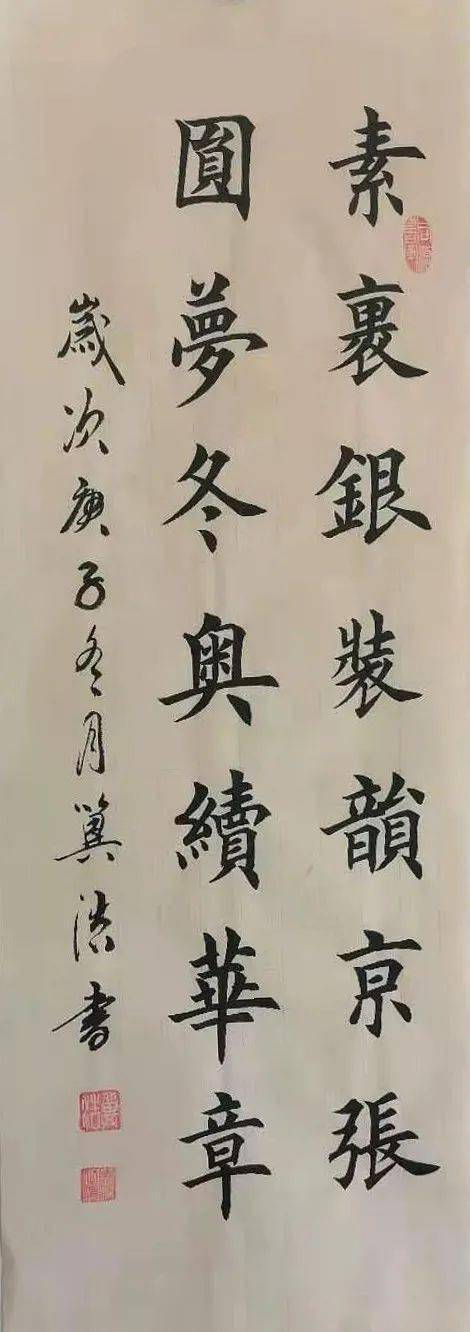 素裹銀裝韻京張
圓夢冬奧續華章
歲次庚子冬月箕浩書